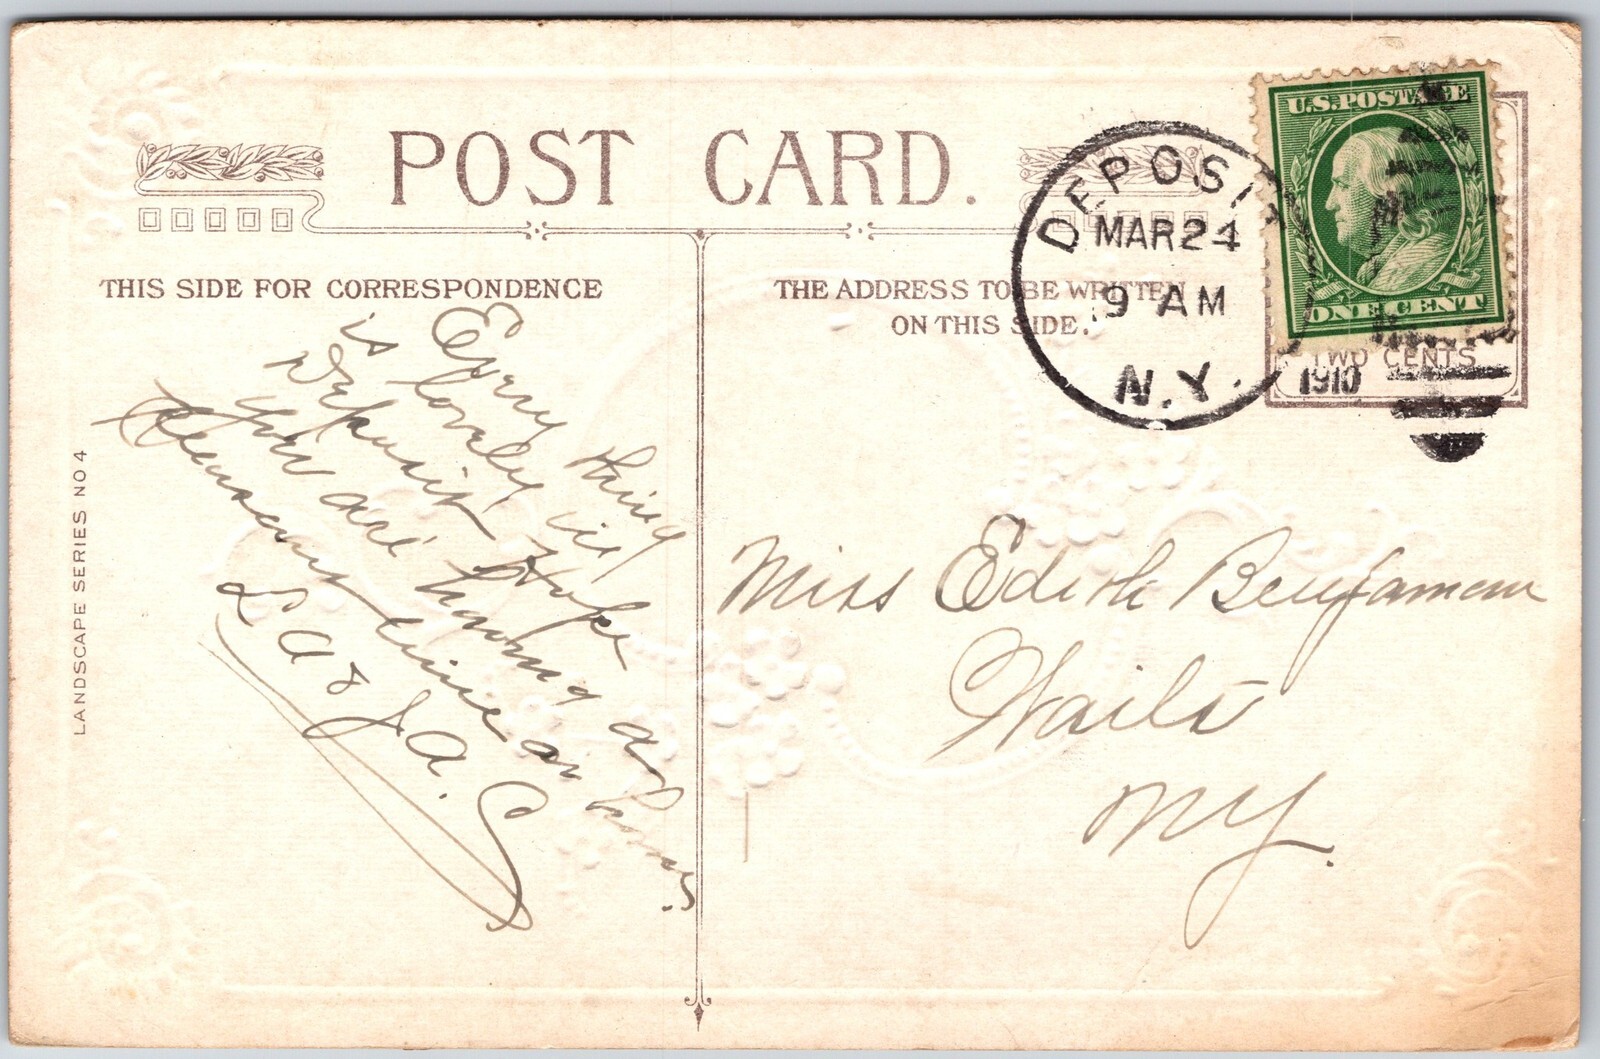 POST CARD.
U.S. POSTAGE
ONE CENT
TWO CENTS
DEPOSIT
MAR 24
9 AM
N.Y.
1910
THIS SIDE FOR CORRESPONDENCE
THE ADDRESS TO BE WRITTEN
ON THIS SIDE.
LANDSCAPE SERIES NO 4
Every thing
is lovely in
Deposit Hope
you are having a
line or
Miss Edith Benjamin
Waits
NY.